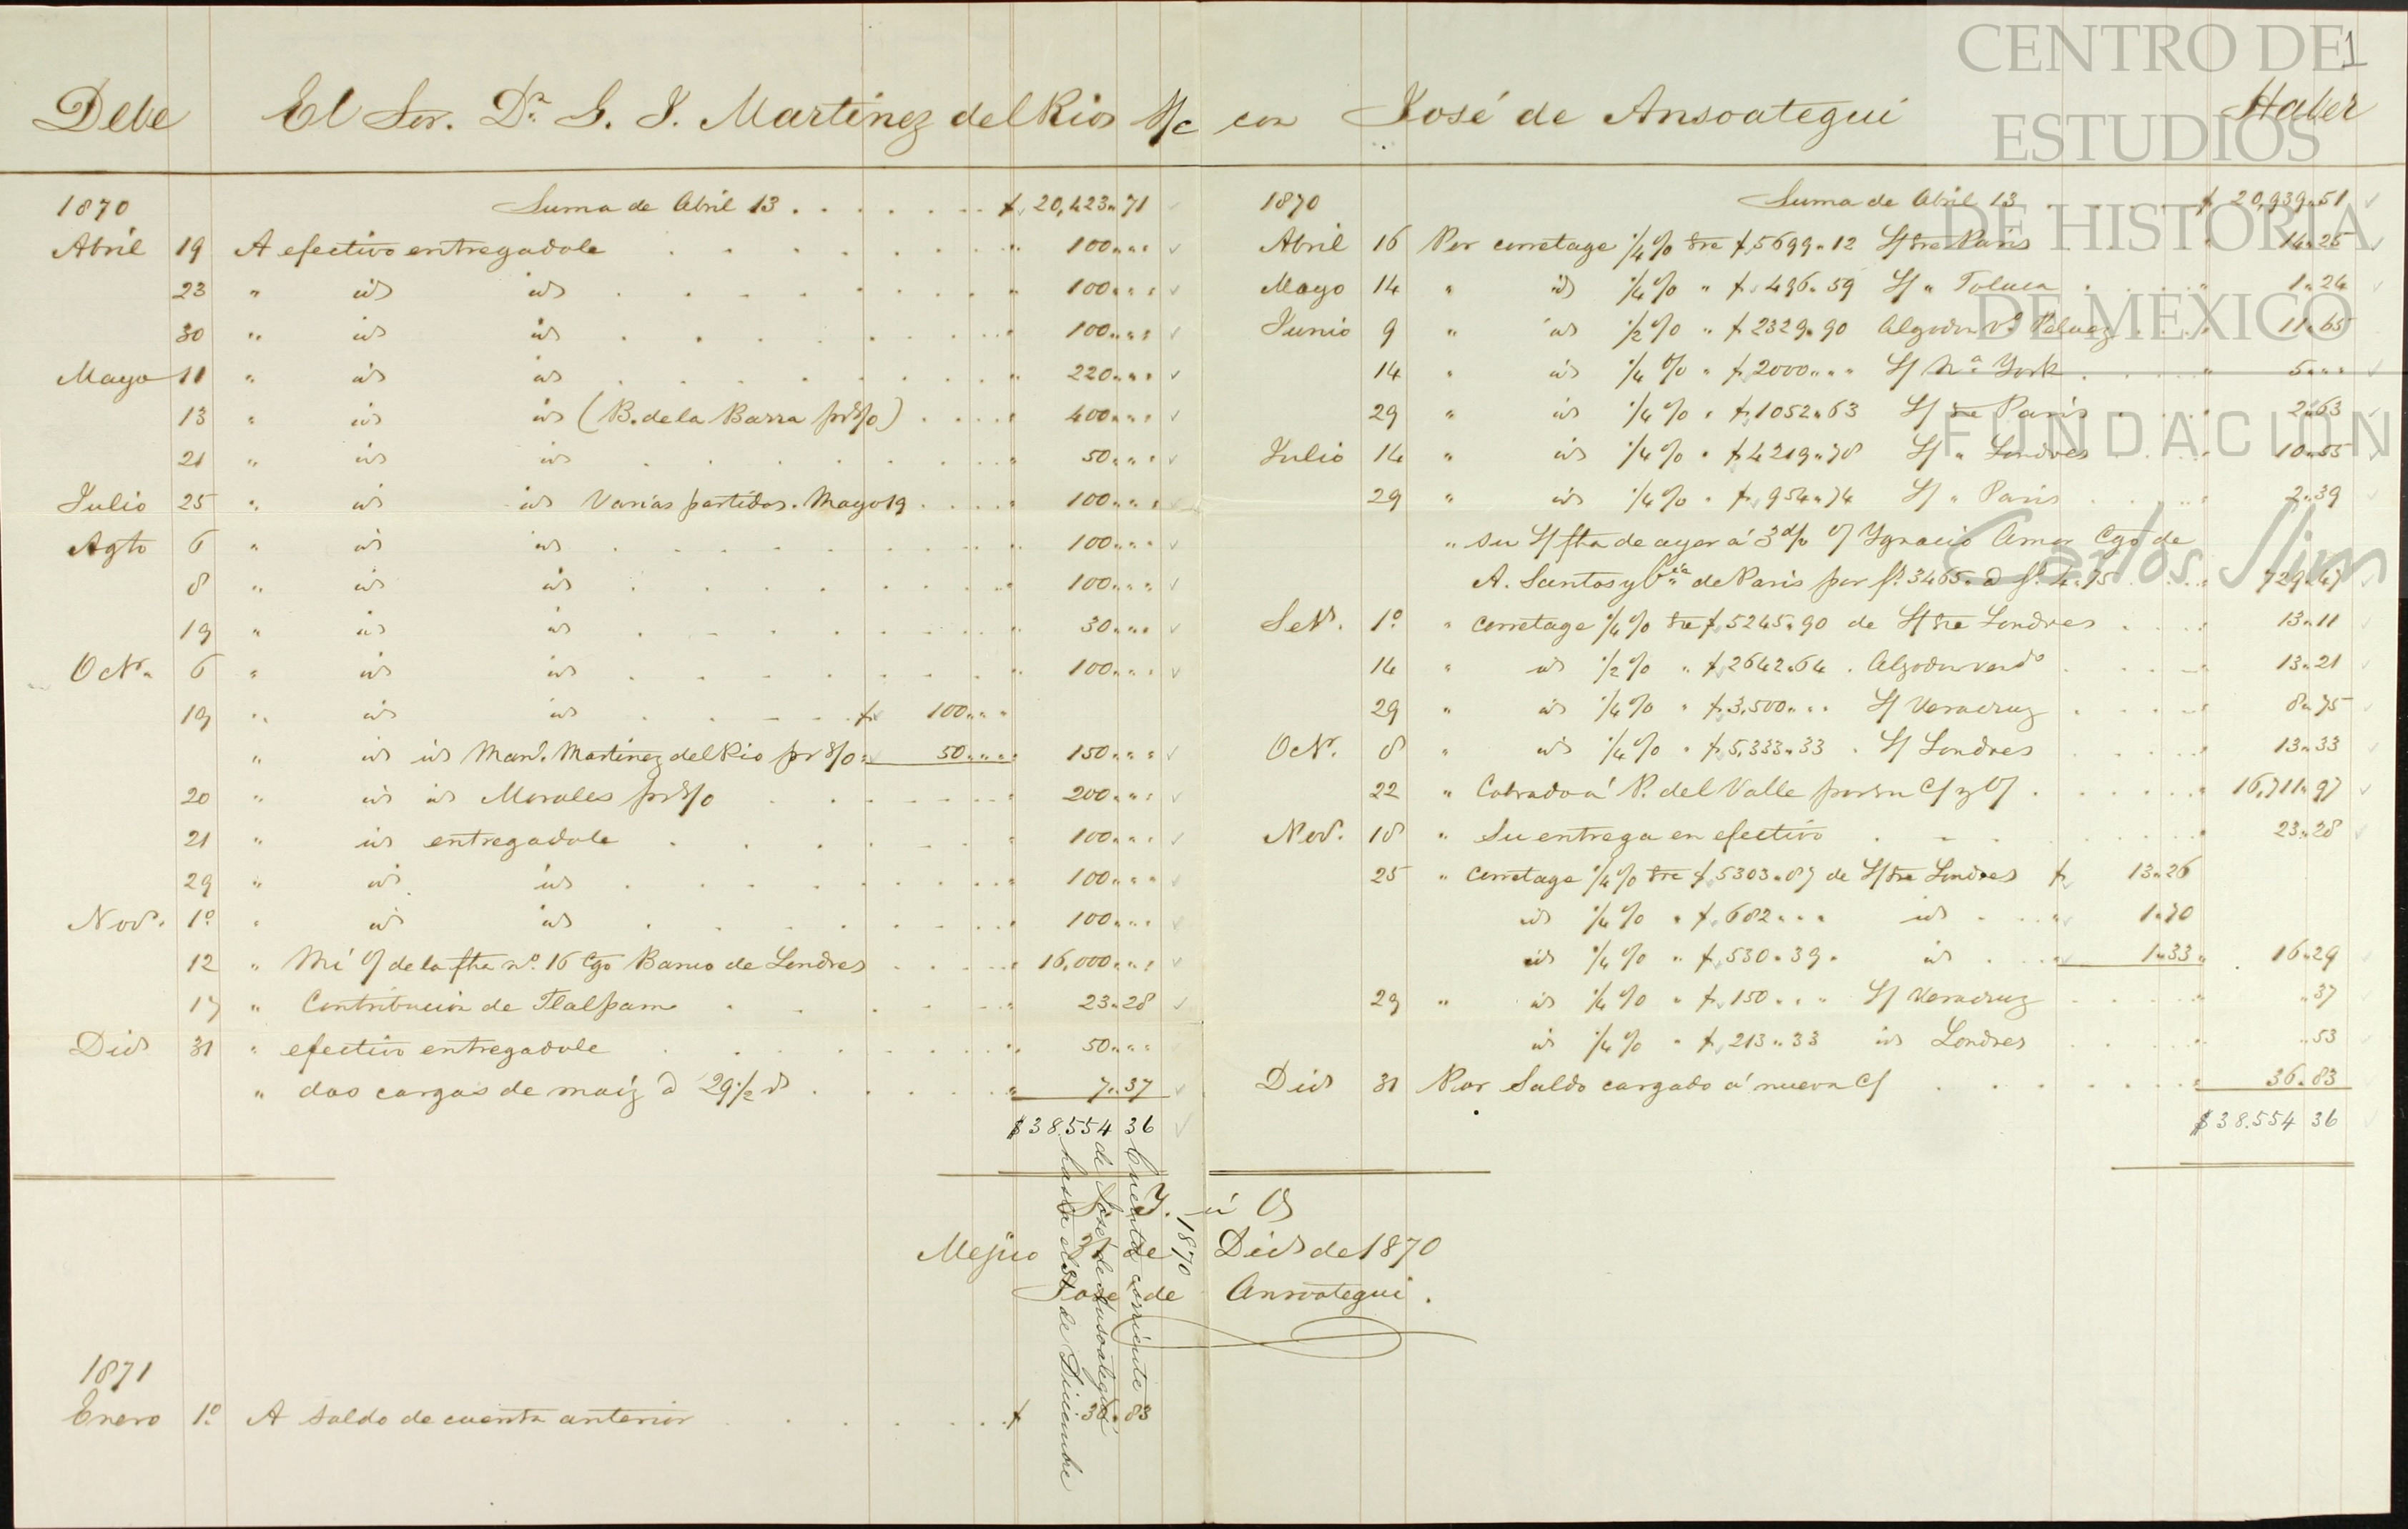 CENTRO DE
ESTUDIOS
DE HISTORIA
DE MEXICO
FUNDACIÓN
Carlos Slim
1
Debe El Sor. Dn. G. J. Martinez del Rio S/c con José de Ansoategui Haber
1870 Suma de Abril 13 . . . . . . . $ 20,423 " 71
Abril 19 A efectivo entregadole . . . . . . . " 100 " "
23 " id id . . . . . . . " 100 " "
30 " id id . . . . . . . " 100 " "
Mayo 11 " id id . . . . . . . " 220 " "
13 " id id (B. de la Barra pr s/o) . . . . " 400 " "
21 " id id . . . . . . . " 50 " "
Julio 25 " id id Varias partidas. Mayo 19 . . . . " 100 " "
Agto 6 " id id . . . . . . . " 100 " "
8 " id id . . . . . . . " 100 " "
19 " id id . . . . . . . " 30 " "
Oct. 6 " id id . . . . . . . " 100 " "
19 " id id . . . . $ 100 " "
" id id Manl. Martinez del Rio pr s/o " 50 " " " 150 " "
20 " id id Morales pr s/o . . . . . " 200 " "
21 " id entregadole . . . . . . " 100 " "
29 " id id . . . . . . . " 100 " "
Nov. 1º " id id . . . . . . . " 100 " "
12 " Mi o/ de la fha nº 16 Cgo Banco de Londres . . . . " 16,000 " "
17 " Contribucion de Tlalpam . . . . . " 23 " 28
Dic 31 " efectivo entregadole . . . . . . . " 50 " "
" dos cargas de maiz à 29 1/2 rs . . . . . " 7 " 37
$ 38.554 36
1870 Suma de Abril 13 . . . . $ 20,939 " 51
Abril 16 Por corretage 1/4 % sre $ 5699 " 12 L/ sre Paris " 14 " 25
Mayo 14 " id 1/4 % " $ 496 " 59 L/ " Toluca . . . . " 1 " 24
Junio 9 " id 1/2 % " $ 2329 " 90 Algodon . . . " 11 " 65
14 " id 1/4 % " $ 2000 " " L/ Na. York . . . . " 5 " "
29 " id 1/4 % " $ 1052 " 63 L/ sre Paris . . . " 2 " 63
Julio 14 " id 1/4 % " $ 4219 " 78 L/ " Londres . . . " 10 " 55
29 " id 1/4 % " $ 954 " 74 L/ " Paris . . . . " 2 " 39
" su L/ fha de ayer á 3 d/v o/ Ygnacio Amor Cgo de
A. Santos y Cia de Paris por f. 3465 " à f. 4 " 75 . . . " 729 " 47
Set. 1º " Corretage 1/4 % sre $ 5245 " 90 de L/ sre Londres . . . " 13 " 11
14 " id 1/2 % " $ 2642 " 64 . Algodon vendo . . . . " 13 " 21
29 " id 1/4 % " $ 3,500 " " L/ Veracruz . . . . " 8 " 75
Oct. 8 " id 1/4 % " $ 5,333 " 33 . L/ Londres . . . . " 13 " 33
22 " Cobrado á P. del Valle por su c/ y o/ . . . . . " 16,711 " 97
Nov. 18 " Su entrega en efectivo . . . . . " 23 " 28
25 " Corretage 1/4 % sre $ 5303 " 87 de L/ sre Londres $ 13 " 26
id 1/4 % " $ 682 " " id . . . " 1 " 70
id 1/4 % " $ 530 " 39 " id . . . " 1 " 33 " 16 " 29
29 " id 1/4 % " $ 150 " " L/ Veracruz . . . . " " 37
id 1/4 % " $ 213 " 33 id Londres . . . . " " 53
Dic 31 Por Saldo cargado á nueva c/ . . . . . . " 36 " 83
$ 38.554 36
S. Y. ú O
Mejico 31 de Dic de 1870
Jose de Ansoategui.
Cuenta corriente
de José de Ansoategui
hasta el 31 de Diciembre
1870
1871
Enero 1º A Saldo de cuenta anterior . . . . . . $ 36 " 83